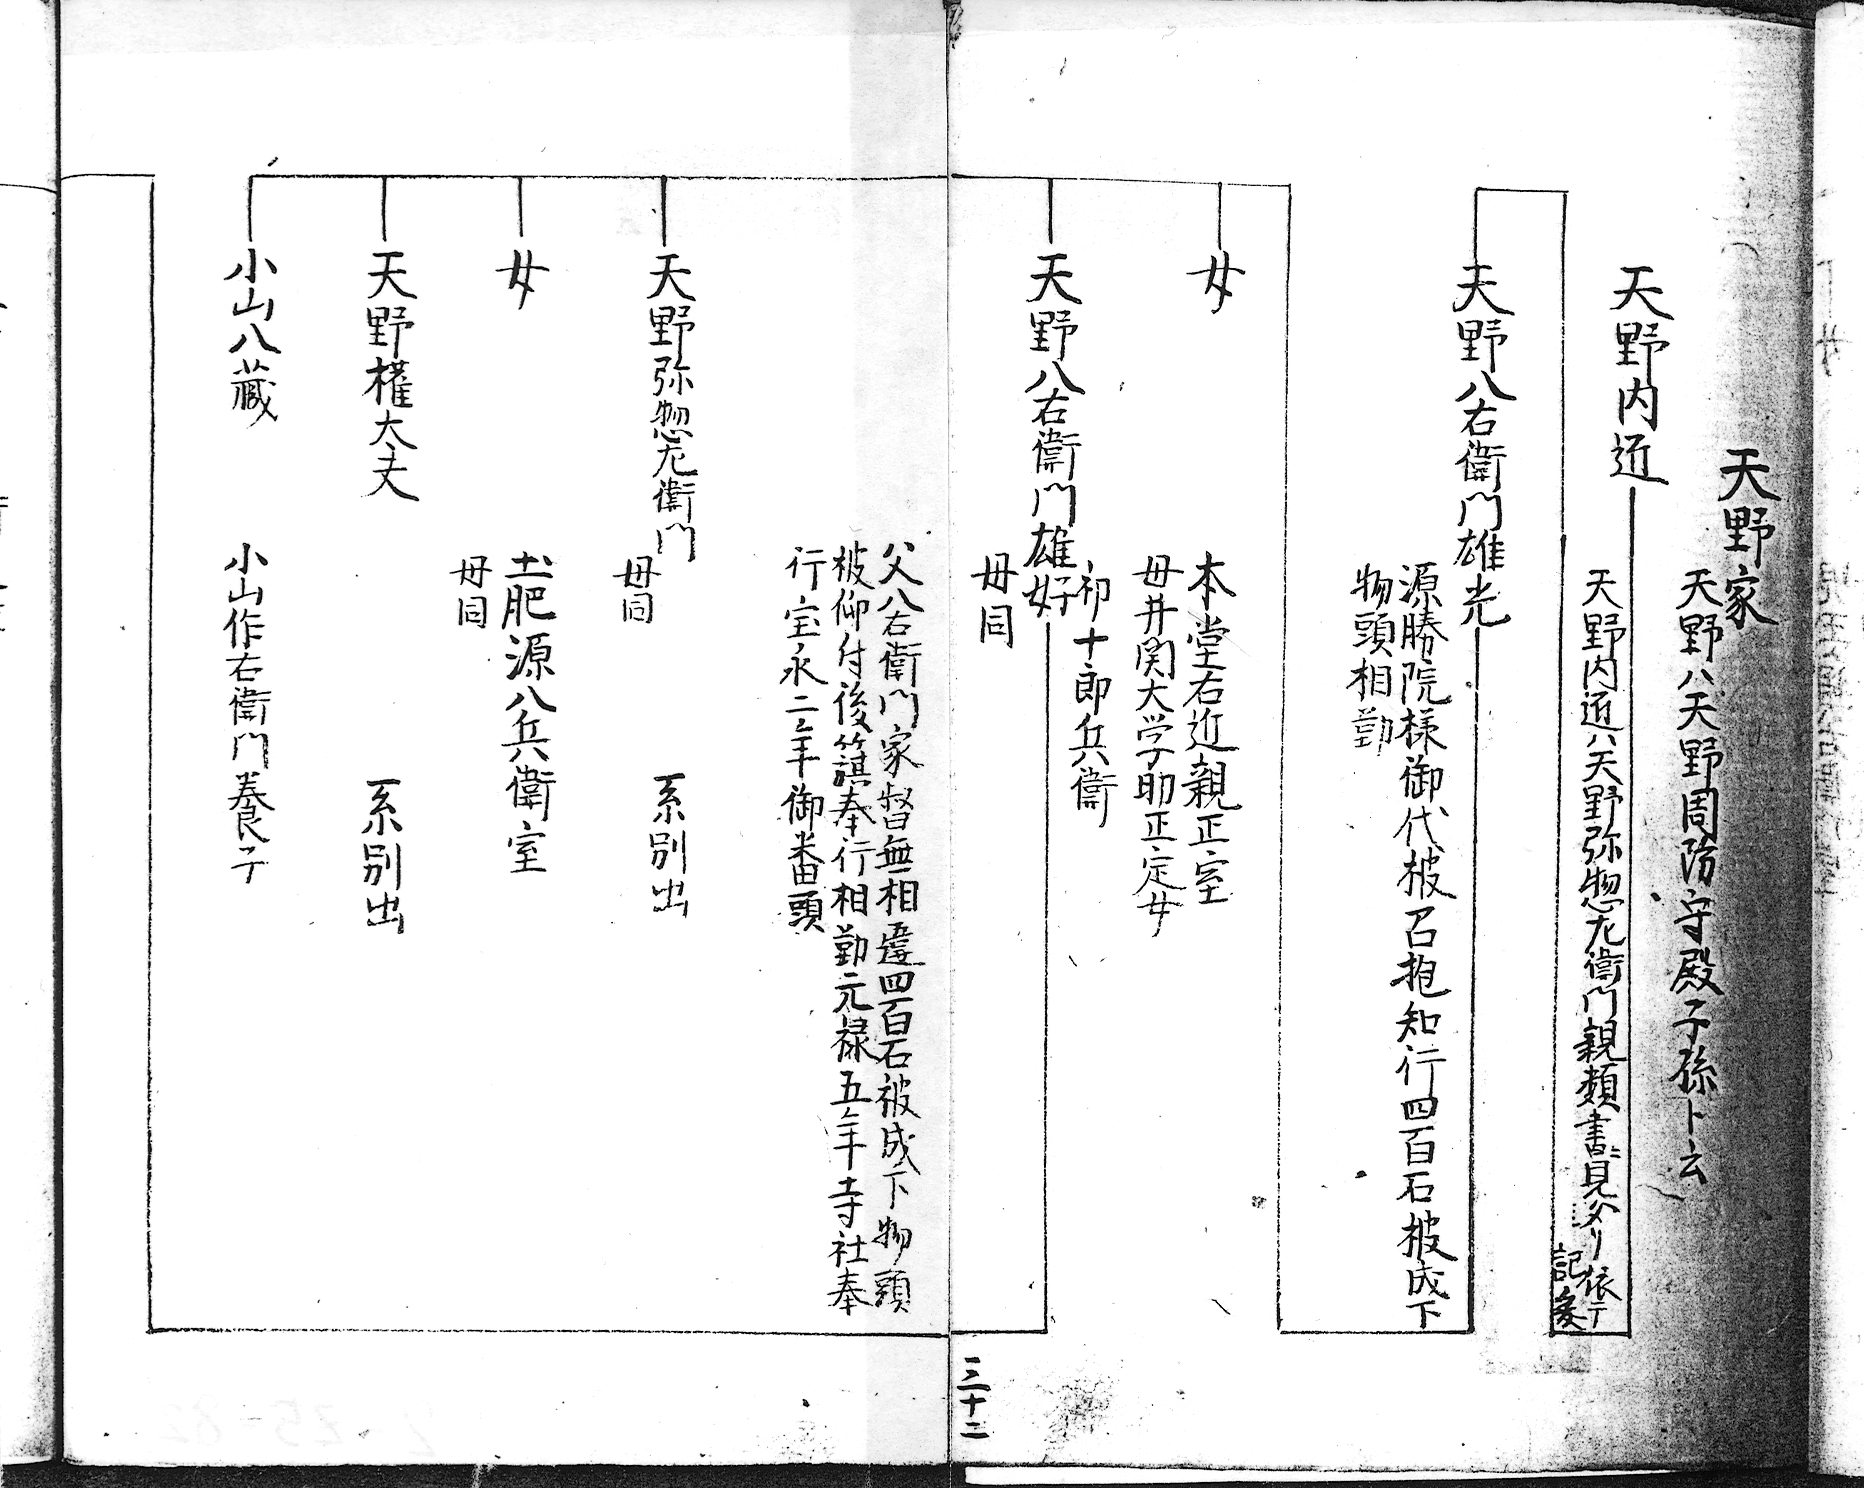 天野家
天野ハ天野周防守殿子孫ト云
天野内近
天野内近ハ天野弥惣左衛門親類書ニ見タリ依テ
記爰
天野八右衛門雄光
源勝院様御代被召抱知行四百石被成下
物頭相勤
女
本堂右近親正室
母井関大学助正定女
天野八右衛門雄好
初十郎兵衛
母同
父八右衛門家督無相違四百石被成下物頭
被仰付後籏奉行相勤元禄五年寺社奉
行宝永二年御番頭
天野弥惣左衛門
母同
系別出
女
土肥源八兵衛室
母同
天野權太夫
系別出
小山八蔵
小山作右衛門養子
三十二